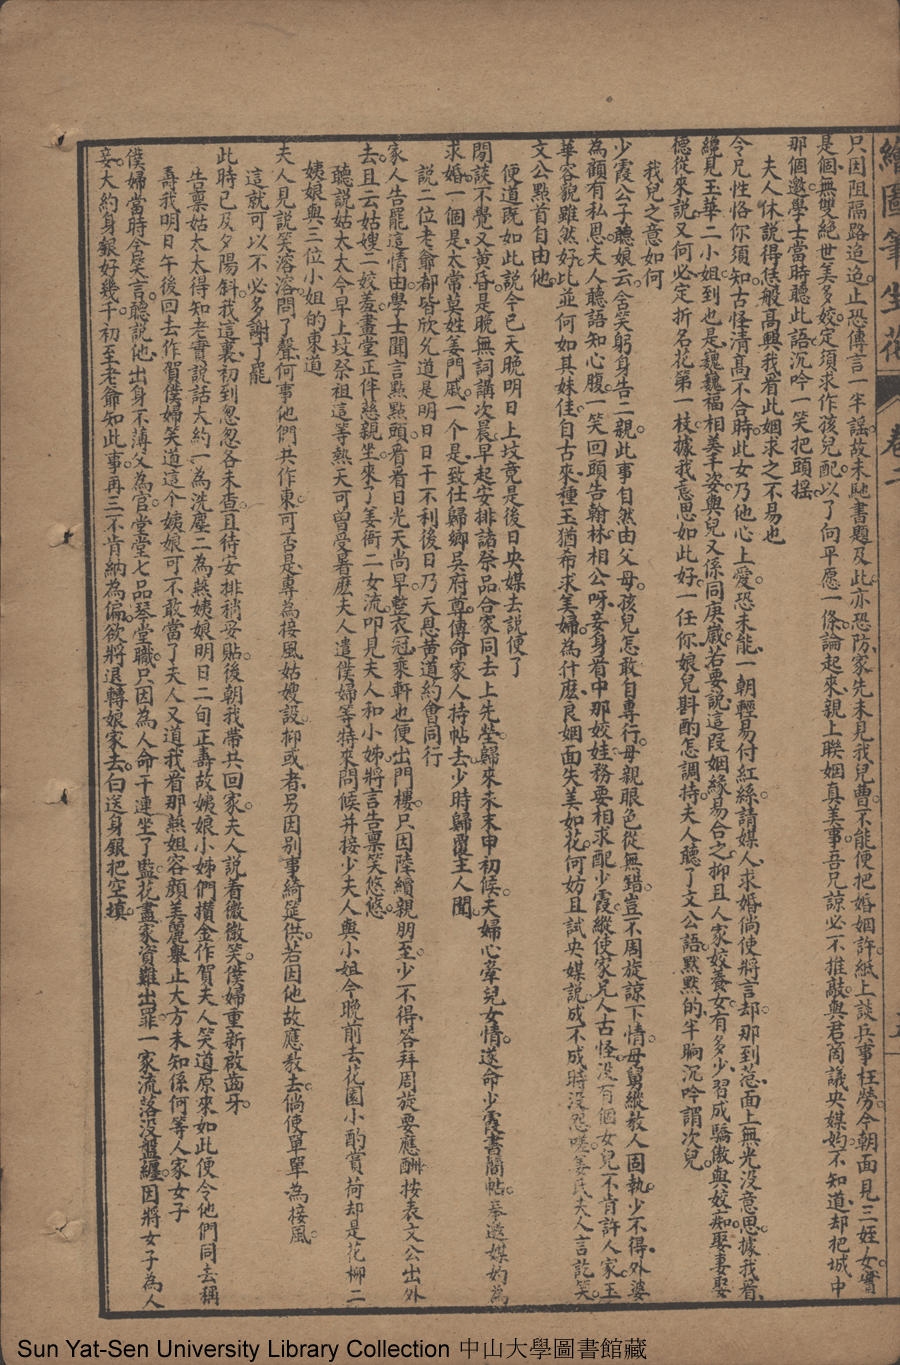 繪圖筆生花 卷二
只因阻隔路迢迢。止恐傳言一半謠。故未馳書題及此。亦恐防、家先未見我兒曹。不能便把婚姻許。紙上談兵事枉勞。今朝面見三姪女。實
是個、無雙絕世美多姣。定須求作孩兒配。以了向平愿一條。論起來、親上聯姻真美事。吾兄諒必不推敲。與君商議央媒妁。不知道、却把城中
那個邀。學士當時聽此語。沉吟一笑把頭搖。
夫人休說得恁般高興我看此姻求之不易也
令兄性恪你須知。古怪清高不合時。此女乃他心上愛。恐未能、一朝輕易付紅絲。請媒人、求婚倘使將言却。那到惹、面上無光沒意思。據我看、
總見玉華二小姐。到也是、巍巍福相美丰姿。與兒又係同庚歲。若要說、這段姻緣易合之。抑且人家姣養女。有多少、習成驕傲與姣痴。娶妻娶
德從來說。又何必定折名花第一枝。據我意思如此好。一任你娘兒斟酌怎調持。夫人聽了文公語。默默的、半晌沉吟謂次兒。
我兒之意如何
少霞公子聽娘云。含笑躬身告二親。此事自然由父母。孩兒怎敢自專行。母親眼色從無錯。豈不周旋諒下情。母舅縱教人固執。少不得、外婆
為顧有私恩。夫人聽語知心腹。一笑回頭告翰林。相公呀、妾身看中那姣娃。務要相求配少霞。縱使家兄人古怪。沒有個、女兒不肯許人家。玉
華容貌雖然好。比並何如其妹佳。自古來、種玉猶希求美婦。為什麼、良姻面失美如花。何妨且試央媒說。成不成時沒怨嗟。姜氏夫人言訖笑。
文公點首自由他。
便道既如此說今已天晚明日上坟竟是後日央媒去說便了
閒談不覺又黃昏。是晚無詞講次晨。早起安排諸祭品。合家同去上先塋。歸來未末申初候。夫婦心牽兒女情。遂命少霞書簡帖。奉邀媒妁為
求婚。一個是、太常莫姓姜門戚。一个是、致仕歸鄉吳府尊。傳命家人持帖去。少時歸覆主人聞。
說二位老爺都皆欣允道是明日日干不利後日乃天恩黃道約會同行
家人告罷這情由。學士聞言點點頭。看看日光天尚早。整衣冠、乘軒也便出門樓。只因陸續親朋至。少不得、答拜周旋要應酬。按表文公出外
去。且云姑嫂二姣羞。畫堂正伴慈親坐。來了姜衙二女流。叩見夫人和小姊。將言告稟笑悠悠。
聽說姑太太今早上坟祭祖這等熱天可曾受暑麼夫人遣僕婦等特來問候并接少夫人與小姐今晚前去花園小酌賞荷却是花柳二
姨娘與三位小姐的東道
夫人見說笑溶溶。問了聲、何事他們共作東。可否是、專為接風姑嫂設。抑或者、另因別事綺筵供。若因他故應教去。倘使單單為接風。
這就可以不必多謝了罷
此時已及夕陽斜。我這裏、初到忽忽各未查。且待安排稍妥貼。後朝我帶共回家。夫人說着微微笑。僕婦重新啟齒牙。
告稟姑太太得知老實說話大約一為洗塵二為燕姨娘明日二旬正壽故姨娘小姊們攢金作賀夫人笑道原來如此便令他們同去稱
壽我明日午後回去作賀僕婦笑道這个姨娘可不敢當了夫人又道我看那燕姐容顏美麗舉止大方未知係何等人家女子
僕婦當時含笑言。聽說他、出身不薄父為官。堂堂七品琴堂職。只因為、人命干連坐了監。花盡家資難出罪。一家流落沒盤纏。因將女子為人
妾。大約身銀好幾千。初至老爺知此事。再三不肯納為偏。欲將退轉娘家去。白送身銀把空填。
Sun Yat-Sen University Library Collection 中山大學圖書館藏